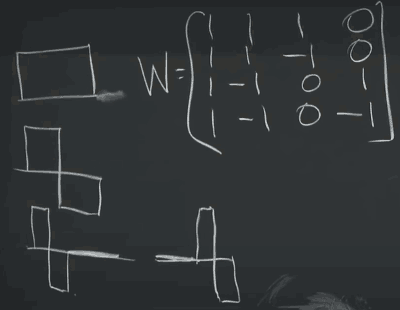 1 1 1 0
W= 1 1 -1 0
1 -1 0 1
1 -1 0 -1